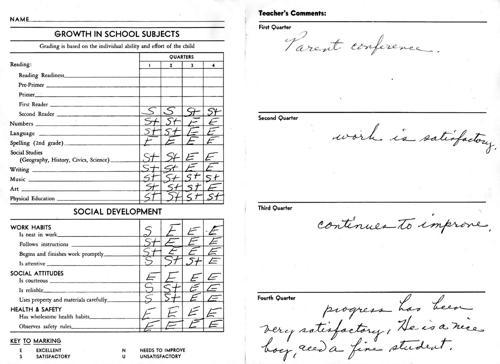 NAME
GROWTH IN SCHOOL SUBJECTS
Grading is based on the individual ability and effort of the child
QUARTERS
Reading: 1 2 3 4
Reading Readiness
Pre-Primer
Primer
First Reader
Second Reader S S S+ S+
Numbers S+ S+ E E
Language S+ S+ E E
Spelling (2nd grade) E E E E
Social Studies
(Geography, History, Civics, Science) S+ S+ E E
Writing S+ S+ E E
Music S+ S+ S+ S+
Art S+ S+ E E
Physical Education S+ S+ S+ E
SOCIAL DEVELOPMENT
WORK HABITS
Is neat in work S E E E
Follows instructions S+ E E E
Begins and finishes work promptly S+ E E E
Is attentive S S+ S+ E
SOCIAL ATTITUDES
Is courteous E E E E
Is reliable S S+ E E
Uses property and materials carefully S S+ E E
HEALTH & SAFETY
Has wholesome health habits E E E E
Observes safety rules E E E E
KEY TO MARKING
E EXCELLENT N NEEDS TO IMPROVE
S SATISFACTORY U UNSATISFACTORY
Teacher's Comments:
First Quarter
Parent conference.
Second Quarter
work is satisfactory.
Third Quarter
continues to improve.
Fourth Quarter
progress has been
very satisfactory. He is a nice
boy, and a fine student.